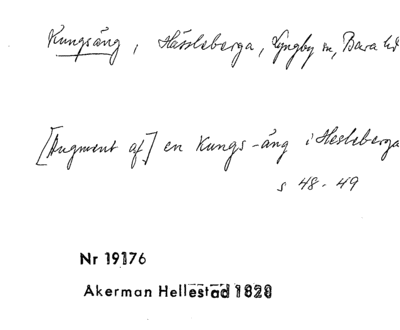 Kungsäng, Hässleberga, Lyngby sn, Bara hd
[Augment af] en Kungs-äng i Hesleberga
s 48-49
Nr 19176
Akerman Hellestad 1828